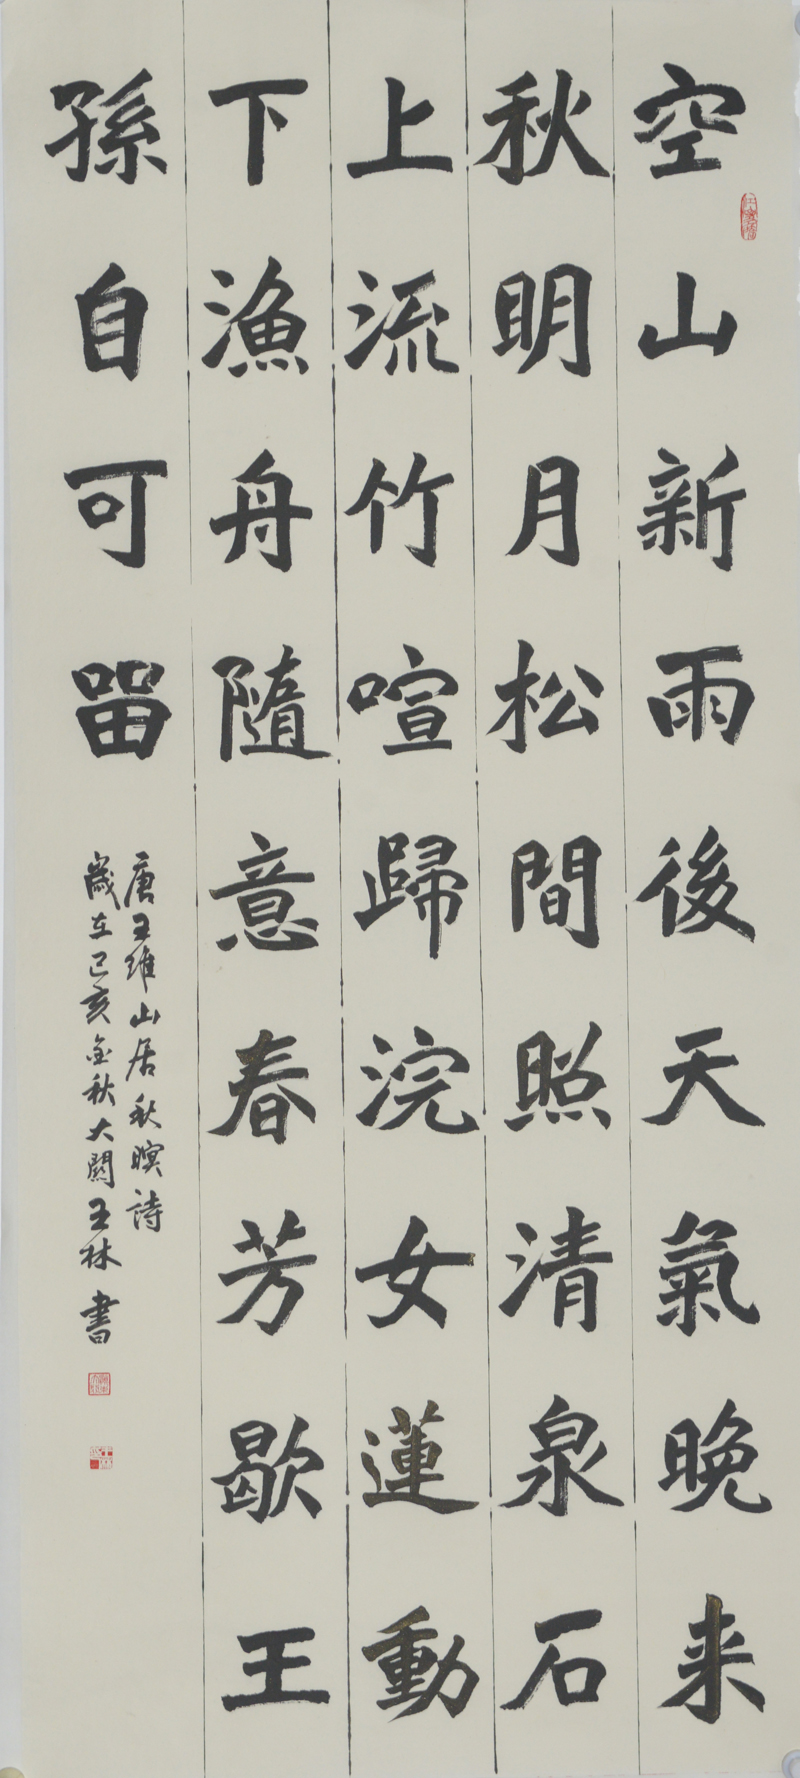 空山新雨後天氣晚来
秋明月松間照清泉石
上流竹喧歸浣女蓮動
下漁舟隨意春芳歇王
孫自可留
唐王維山居秋暝詩
歲在己亥金秋大關王林書